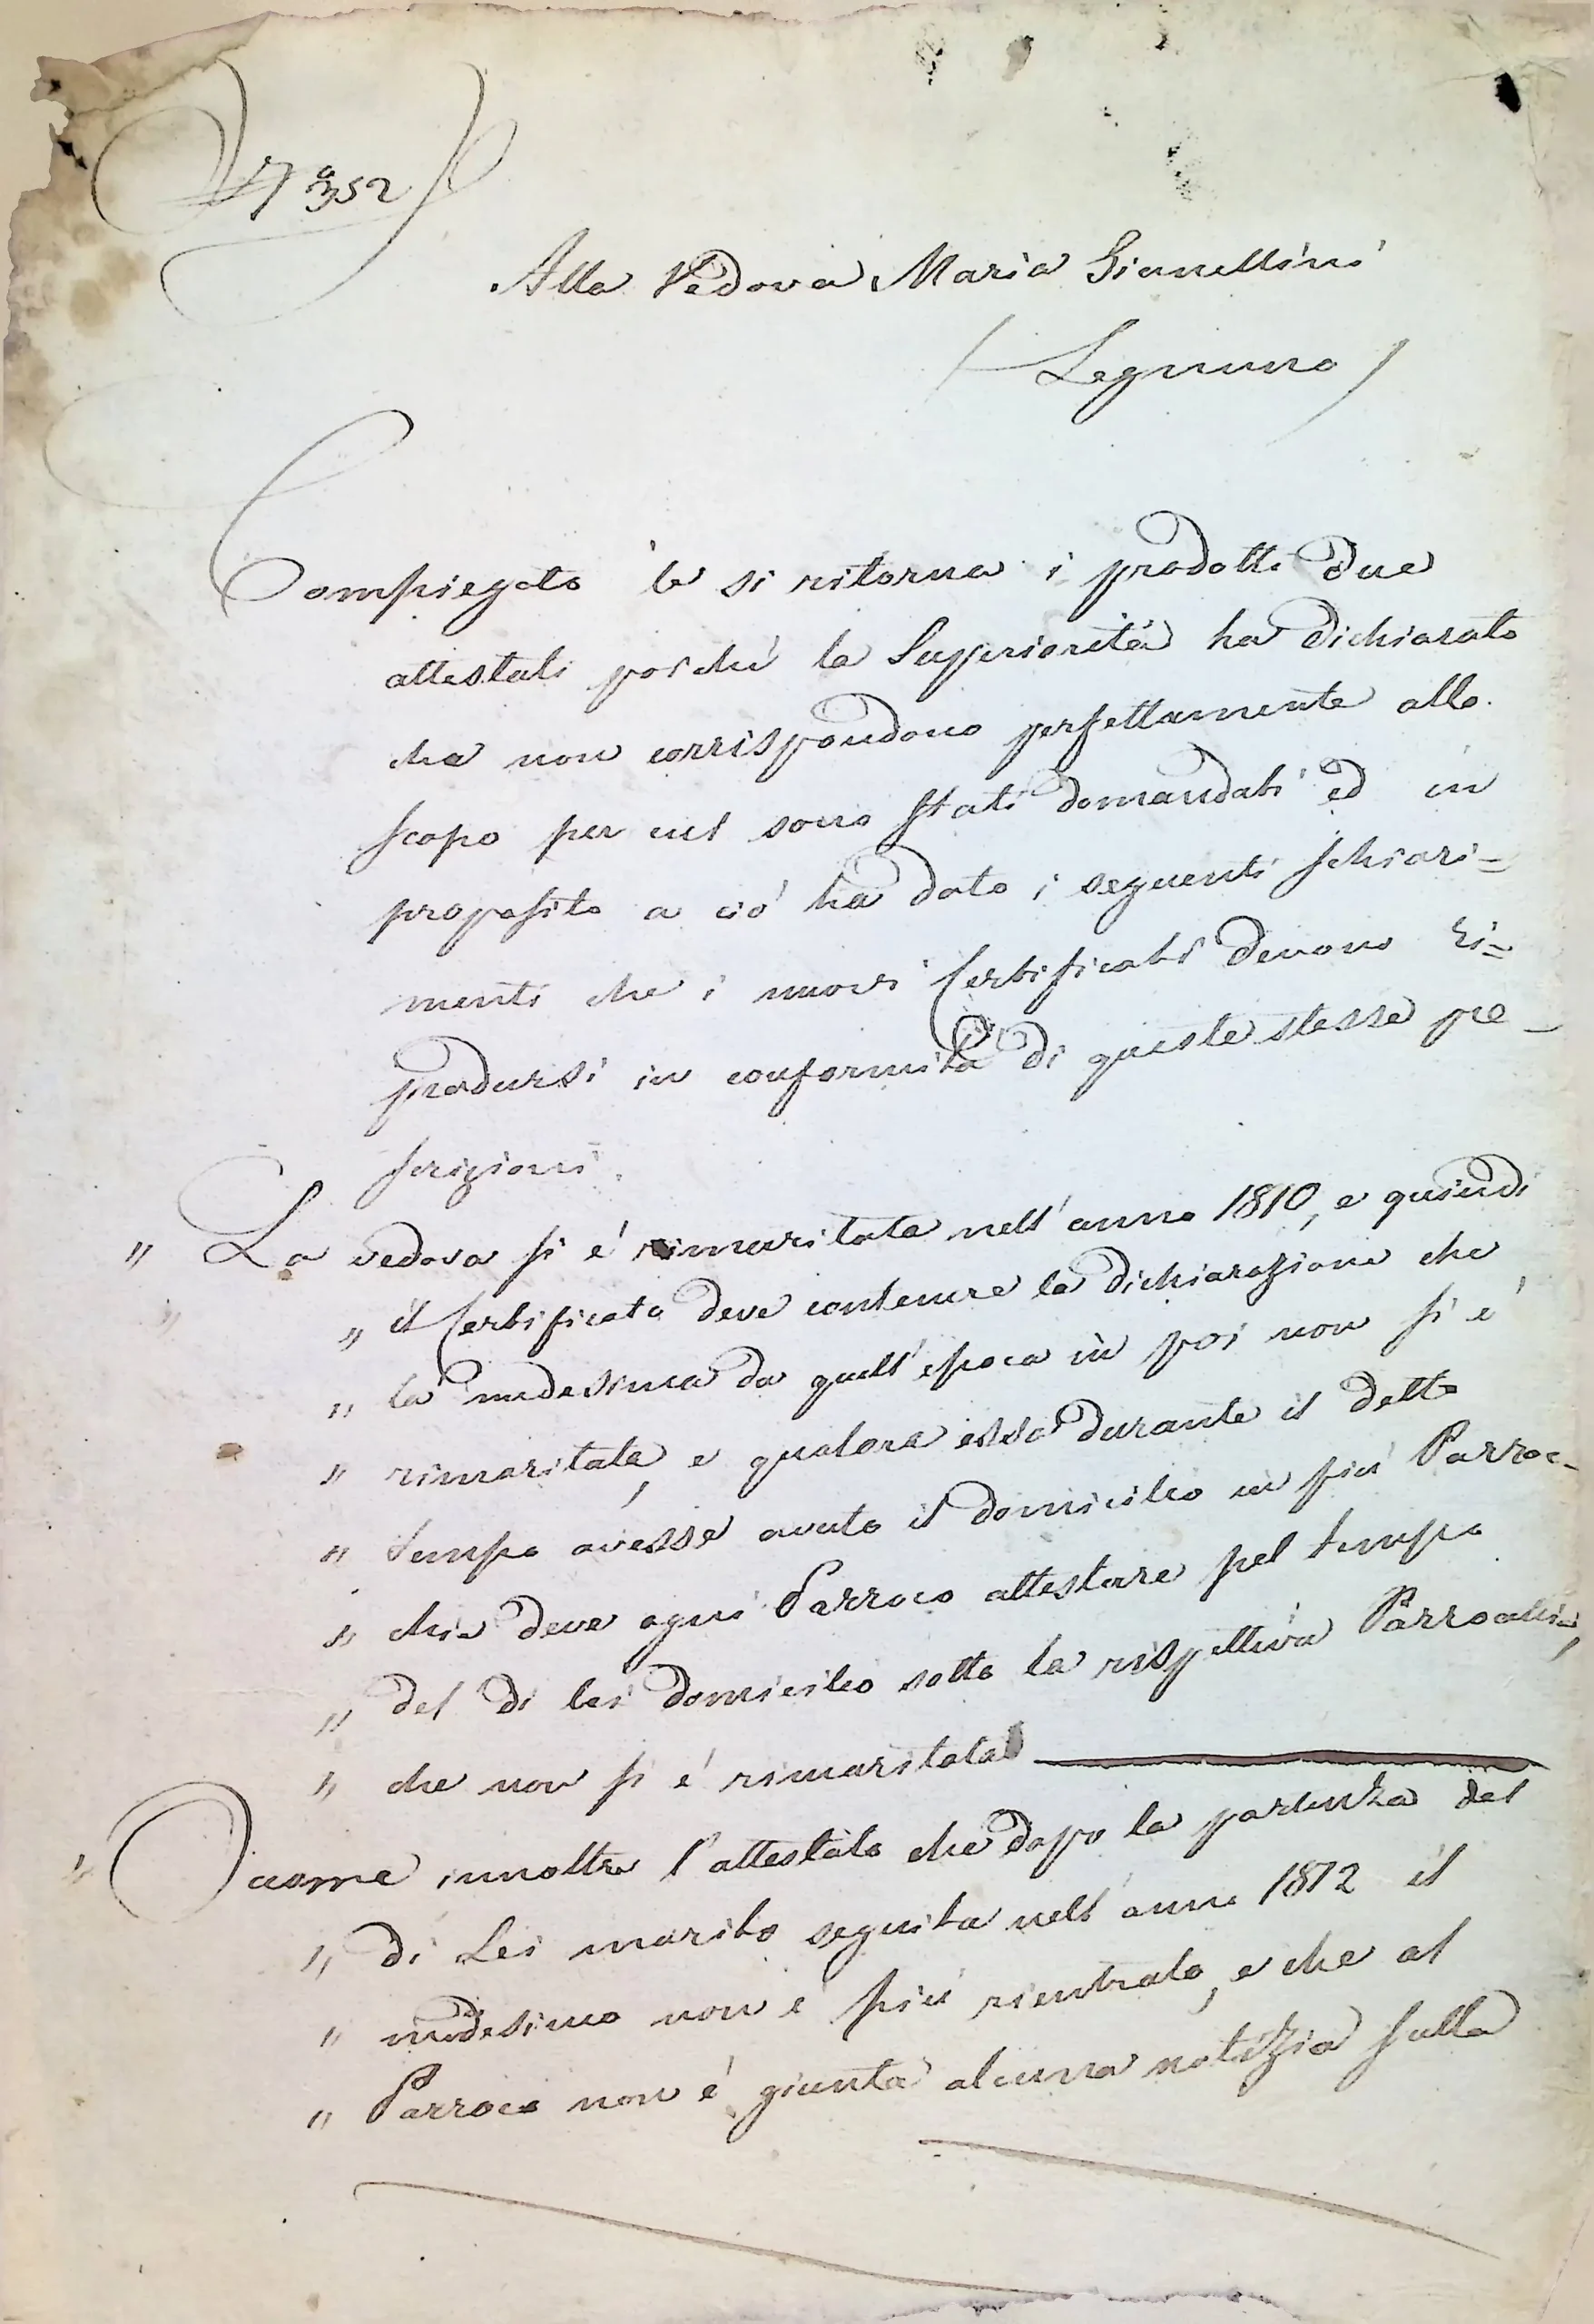 N° 352
Alla Vedova Maria Gianellini
Legnano
Compiegato le si ritorna i prodotti due
attestati poichè la Superiorità ha dichiarato
che non corrispondono perfettamente allo
scopo per cui sono stati domandati ed in
proposito a ciò ha dato i seguenti schiari=
menti che i nuovi Certificati devono ri=
prodursi in conformità di queste stesse pre-
scrizioni.
" La vedova si è rimaritata nell'anno 1810, e quindi
" il Certificato deve contenere la dichiarazione che
" la medesima da quell'epoca in poi non si è
" rimaritata, e qualora essa durante il detto
" tempo avesse avuto il domicilio in più Parroc-
" chie deve ogni Parroco attestare pel tempo
" del di lei domicilio sotto la rispettiva Parrocchia,
" che non si è rimaritata
" Occorre innoltre l'attestato che dopo la partenza del
" di Lei marito seguita nell'anno 1812 il
" medesimo non è più rientrato, e che al
" Parroco non è giunta alcuna notizia sulla